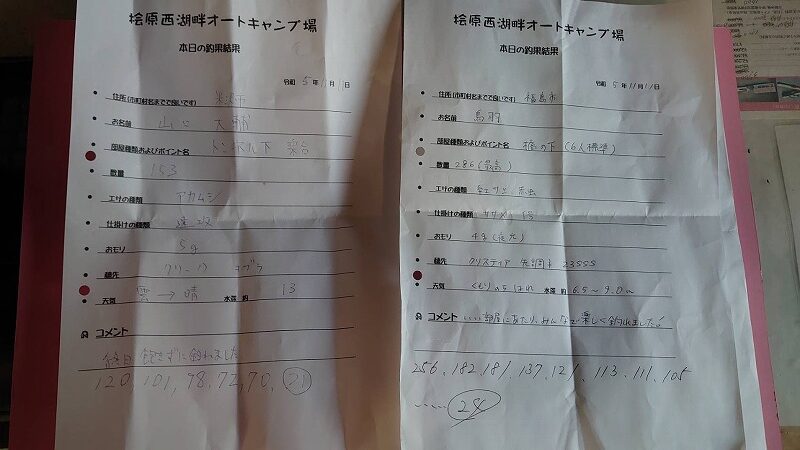 桧原西湖畔オートキャンプ場
本日の釣果結果
令和 5年11月11日
住所(市町村名まで良いです) 米沢市
お名前 山 大輔
部屋種類およびポイント名 トンネル下 楽台
数量 153
エサの種類 アカムシ
仕掛けの種類
おモリ 5g
穂先
天気 雲→晴 水深 約 13
コメント
終日飽きずに釣れました
120, 101, 98, 72, 70, 21
桧原西湖畔オートキャンプ場
本日の釣果結果
令和 5年11月11日
住所(市町村名まで良いです) 福島市
お名前
部屋種類およびポイント名 の下 (6人標準)
数量 286 (最高)
エサの種類 紅サシ 赤虫
仕掛けの種類
おモリ
穂先 クリスティア 先調子 23SSS
天気 くもりのちはれ 水深 約 6.5~9.0m
コメント いい部屋にあたり、みんなで楽しく釣れました!
256, 182, 181, 137, 121, 113, 111, 105
…… 24